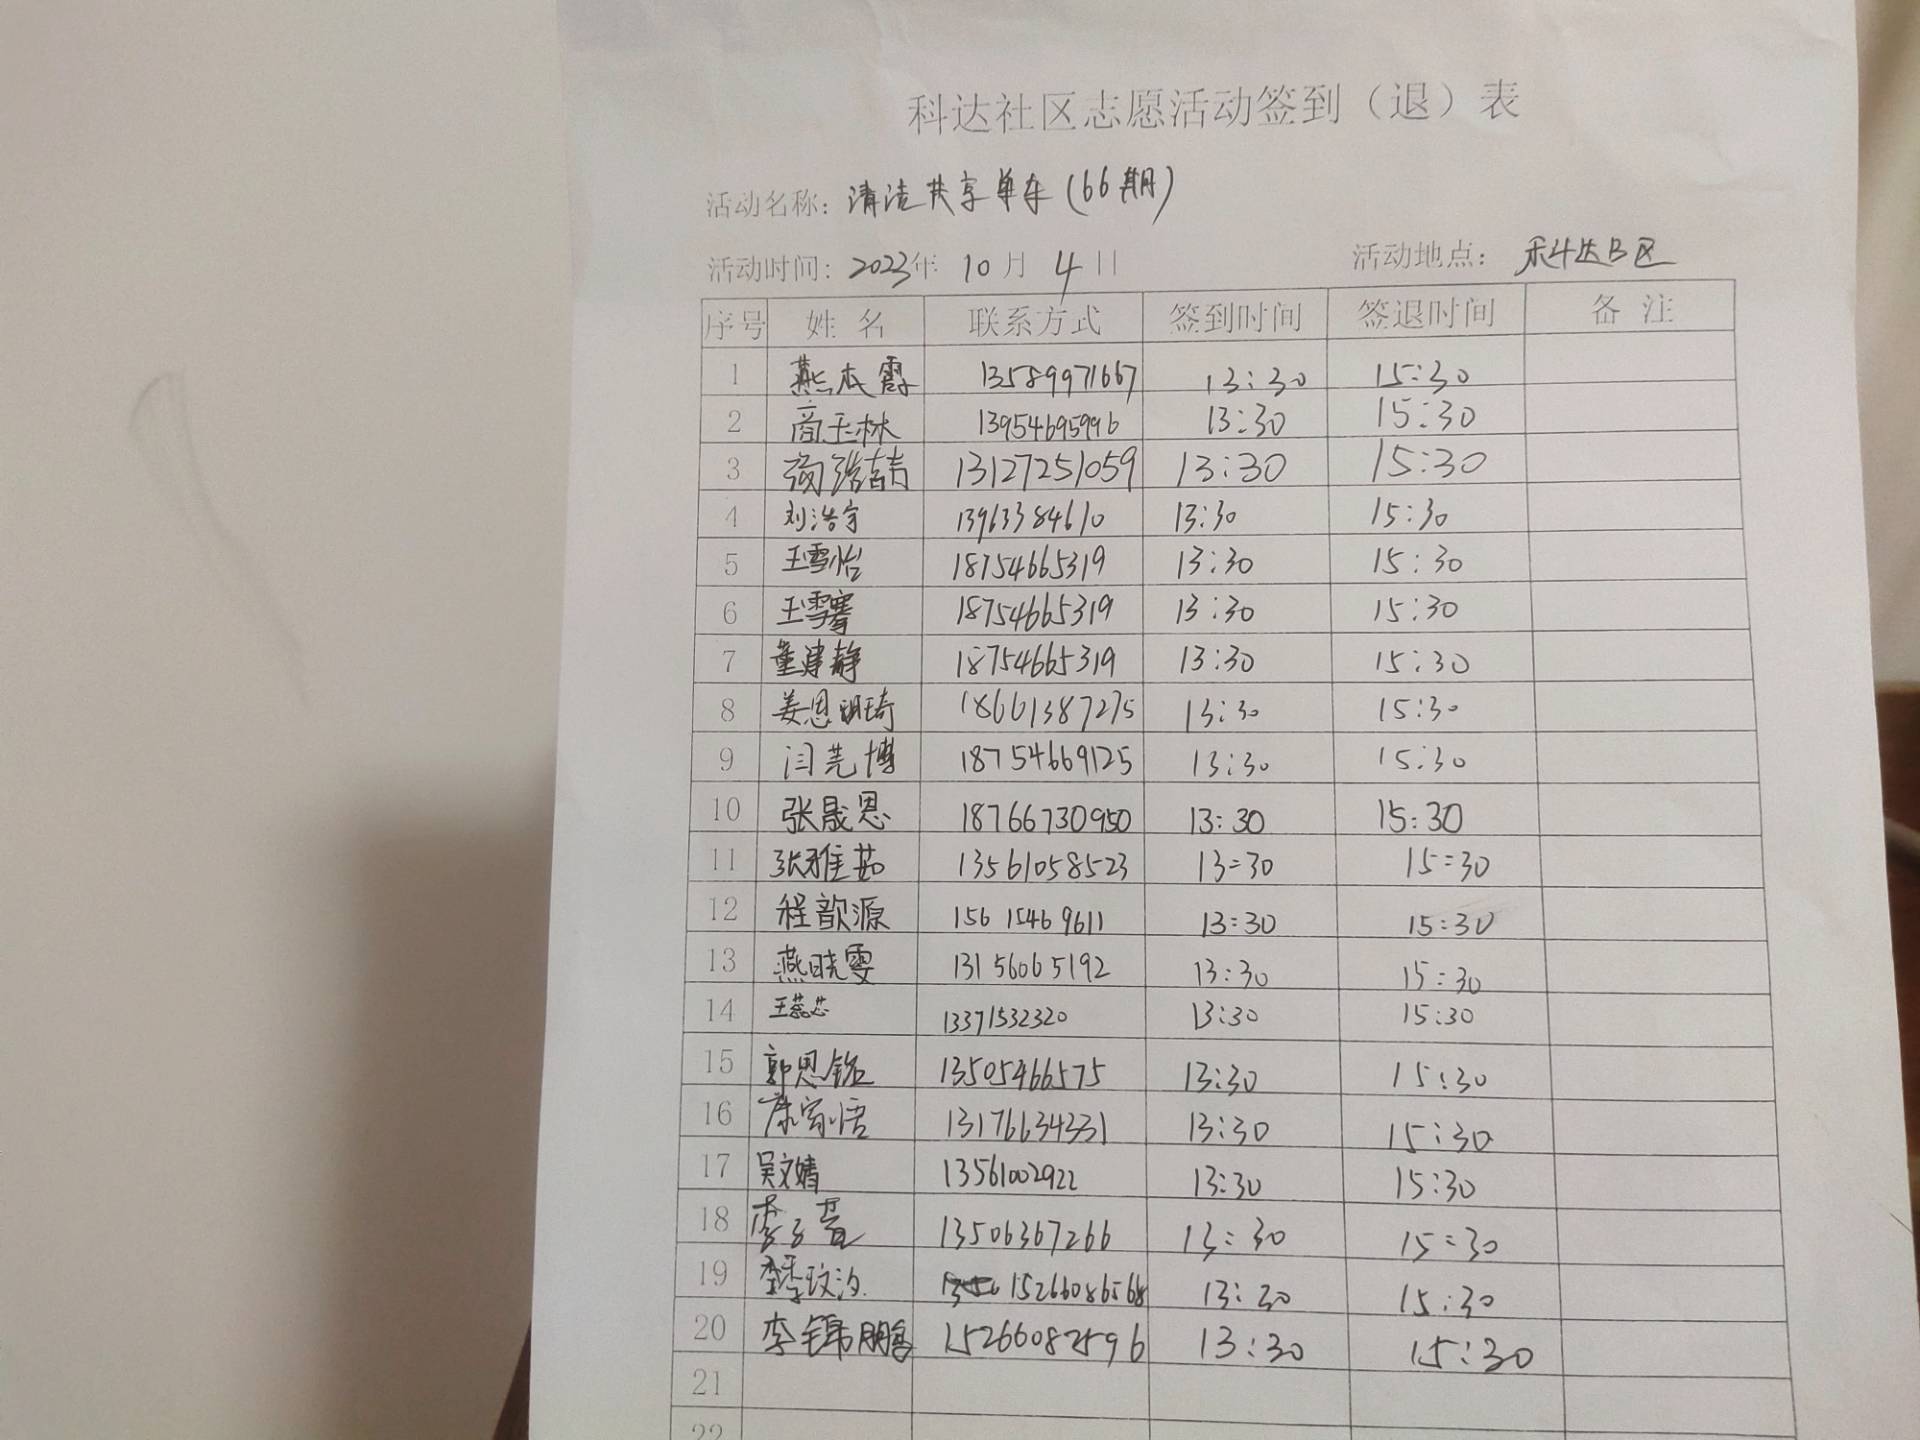 科达社区志愿活动签到（退）表
活动名称: 清洁共享单车(66期)
活动时间: 2023年 10月 4日 活动地点: 科达B区
序号 姓 名 联系方式 签到时间 签退时间 备 注
1 燕本霞 13589971667 13:30 15:30
2 商玉林 13954695996 13:30 15:30
3 13127251059 13:30 15:30
4 刘浩宇 13963384610 13:30 15:30
5 王雪怡 18754665319 13:30 15:30
6 王雪骞 18754665319 13:30 15:30
7 董建静 18754665319 13:30 15:30
8 姜恩玥琦 18661387275 13:30 15:30
9 闫芫博 18754669125 13:30 15:30
10 张晟恩 18766730950 13:30 15:30
11 张雅茹 13561058523 13:30 15:30
12 程歆源 15615469611 13:30 15:30
13 燕晓雯 13156065192 13:30 15:30
14 王蕊芯 13371532320 13:30 15:30
15 郭恩铭 13505466575 13:30 15:30
16 康家悟 13176634331 13:30 15:30
17 吴文婧 13561002922 13:30 15:30
18 李子萱 13506367266 13:30 15:30
19 李玟汐 15266086568 13:30 15:30
20 李锦鹏 15266082596 13:30 15:30
21
22